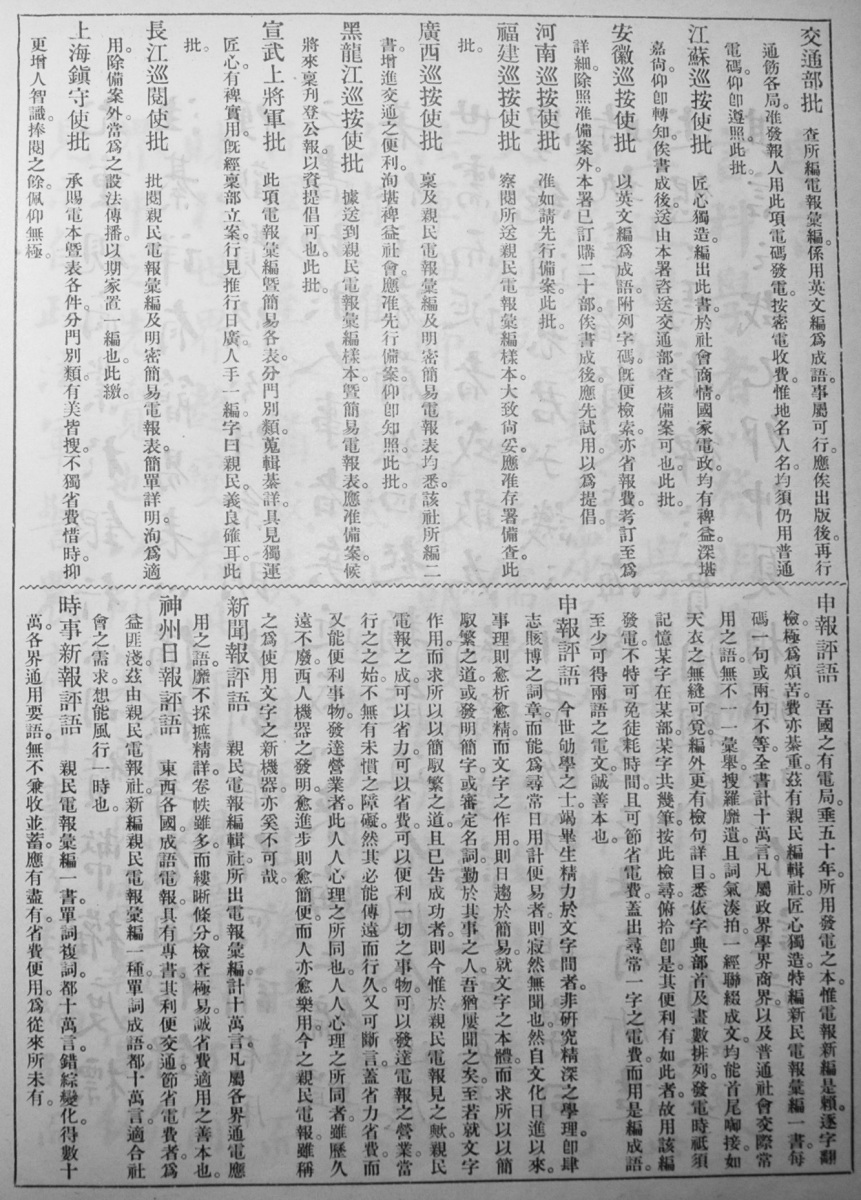 交通部批　查所編電報彙編係用英文編爲成語。事屬可行。應俟出版後。再行
通飭各局。准發報人用此項電碼發電。按密電收費。惟地名人名均須仍用普通
電碼。仰卽遵照此批。
江蘇巡按使批　匠心獨造。編出此書。於社會商情國家電政均有裨益。深堪
嘉尙。仰卽轉知。俟書成後。送由本署咨送交通部查核備案可也。此批。
安徽巡按使批　以英文編爲成語。附列字碼。旣便檢索。亦省報費。考訂至爲
詳細。除照准備案外。本署已訂購二十部。俟書成後。應先試用。以爲提倡。
河南巡按使批　准如請先行備案。此批。
福建巡按使批　察閱所送親民電報彙編樣本。大致尙妥。應准存署備查。此
批。
廣西巡按使批　稟及親民電報彙編及明密簡易電報表均悉。該社所編二
書。增進交通之便利。洵堪裨益社會。應准先行備案。仰卽知照。此批。
黑龍江巡按使批　據送到親民電報彙編樣本曁簡易電報表。應准備案。候
將來稟刋登公報。以資提倡可也。此批。
宣武上將軍批　此項電報彙編曁簡易各表。分門別類。蒐輯綦詳。具見獨運
匠心。有裨實用。旣經稟部立案。行見推行日廣。人手一編。字曰親民。義良確耳。此
批。
長江巡閱使批　批閱親民電報彙編及明密簡易電報表。簡單詳明。洵爲適
用。除備案外。當爲之設法傳播。以期家置一編也。此繳。
上海鎭守使批　承賜電本曁表各件。分門別類。有美皆搜。不獨省費惜時。抑
更增人智識。捧閱之餘。佩仰無極。
申報評語　吾國之有電局。垂五十年。所用發電之本。惟電報新編是賴。逐字翻
檢。極爲煩苦。費亦綦重。茲有親民編輯社。匠心獨造。特編新民電報彙編一書。每
碼一句或兩句不等。全書計十萬言。凡屬政界學界商界以及普通社會交際常
用之語。無不一一彙舉。搜羅靡遺。且詞氣湊拍。一經聯綴成文。均能首尾啣接。如
天衣之無縫可覓。編外更有檢句詳目。悉依字典部首及畫數排列。發電時祇須
記憶某字在某部。某字共幾筆。按此檢尋。俯拾卽是。其便利有如此者。故用該編
發電。不特可免徒耗時間。且可節省電費。蓋出尋常一字之電費。而用是編成語。
至少可得兩語之電文。誠善本也。
申報評語　今世劬學之士。竭畢生精力於文字間者。非研究精深之學理。卽肆
志賅博之詞章。而能爲尋常日用計便易者。則寂然無聞也。然自文化日進以來。
事理則愈析愈精。而文字之作用。則日趨於簡易。就文字之本體。而求所以以簡
馭繁之道。或發明簡字。或審定名詞。勤於其事之人。吾猶屢聞之矣。至若就文字
作用而求所以以簡馭繁之道。且已告成功者。則今惟於親民電報見之歟。親民
電報之成。可以省力。可以省費。可以便利一切之事物。可以發達電報之營業。當
行之之始。不無有未慣之障礙。然其必能傳遠而行久。又可斷言。蓋省力省費。而
又能便利事物發達營業者。此人人心理之所同也。人人心理之所同者。雖歷久
遠不廢。西人機器之發明。愈進步則愈簡便。而人亦愈樂用。今之親民電報。雖稱
之爲使用文字之新機器。亦奚不可哉。
新聞報評語　親民電報編輯社所出電報彙編計十萬言。凡屬各界通電應
用之語。靡不採摭精詳。卷帙雖多。而縷晰條分。檢查極易。誠省費適用之善本也。
神州日報評語　東西各國成語電報。具有專書。其利便交通節省電費者。爲
益匪淺。茲由親民電報社新編親民電報彙編一種。單詞成語都十萬言。適合社
會之需求。想能風行一時也。
時事新報評語　親民電報彙編一書。單詞複詞都十萬言。錯綜變化。得數十
萬。各界通用要語。無不兼收並蓄。應有盡有。省費便用。爲從來所未有。